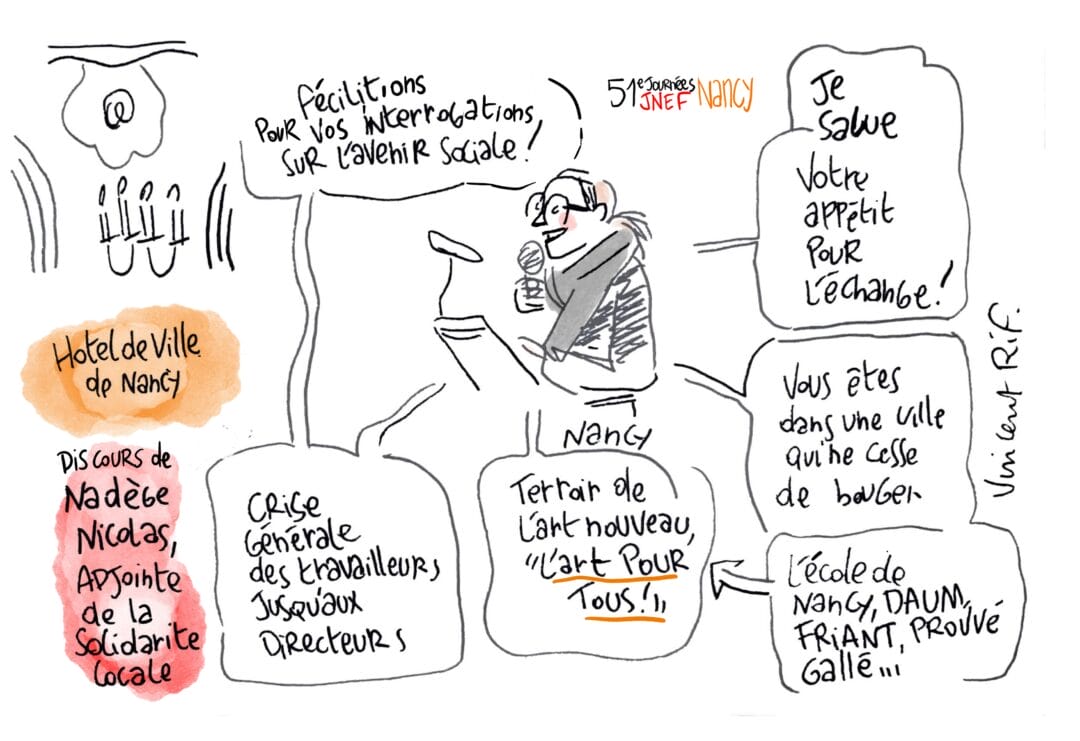 fécilitions
POUR VOS interrogations,
SUR L'AVENIR SOCIALE !
51e JOURNÉES
JNEF NANCY
Je
salue
Votre
appétit
POUR
L'échange !
Hotel de Ville
de NANCY
DISCOURS de
Nadège
Nicolas,
ADJointe
de la
Solidarite
Locale
CRISE
Générale
des travailleurs
JUSQU'AUX
DIRECTEURS
NANCY
Terroir de
L'art nouveau,
"L'art POUR
TOUS !"
Vous êtes
dans une ville
qui ne cesse
de bouger
L'école de
NANCY, DAUM,
FRIANT, PROUVÉ
Gallé...
Vincent RIF.